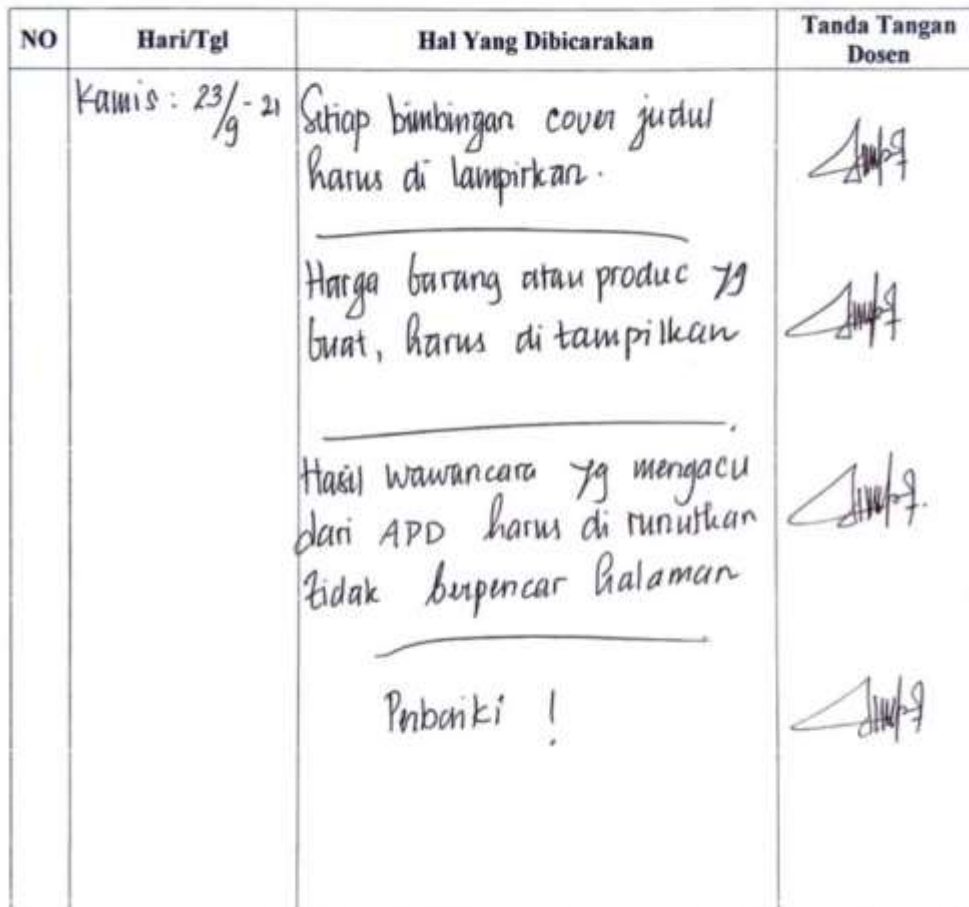 NO Hari/Tgl Hal Yang Dibicarakan Tanda Tangan
Dosen
Kamis : 23/9 - 21 Setiap bimbingan cover judul
harus di lampirkan.
Harga barang atau produc yg
buat, harus di tampilkan
Hasil wawancara yg mengacu
dari APD harus di runutkan
tidak berpencar halaman
Perbaiki !